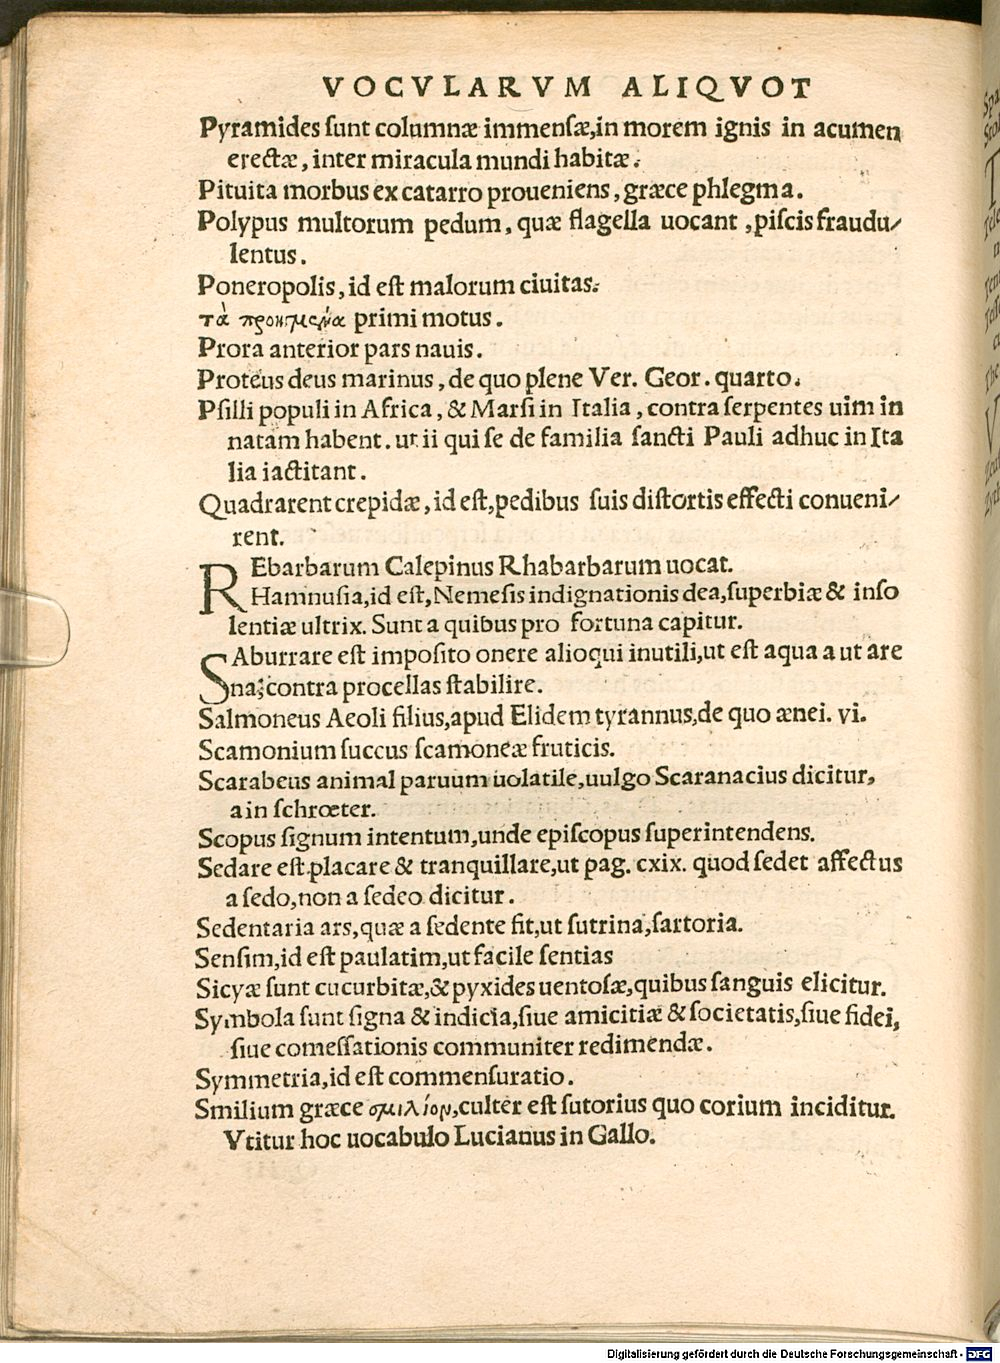 VOCVLARVM ALIQVOT
Pyramides sunt columnæ immensæ,in morem ignis in acumen
erectæ, inter miracula mundi habitæ.
Pituita morbus ex catarro proueniens, græce phlegma.
Polypus multorum pedum, quæ flagella uocant, piscis fraudu/
lentus.
Poneropolis, id est malorum ciuitas.
τὰ προηγμένα primi motus.
Prora anterior pars nauis.
Proteus deus marinus, de quo plene Ver. Geor. quarto.
Psilli populi in Africa, & Marsi in Italia, contra serpentes uim in
natam habent. ut ii qui se de familia sancti Pauli adhuc in Ita
lia iactitant.
Quadrarent crepidæ, id est, pedibus suis distortis effecti conueni/
rent.
REbarbarum Calepinus Rhabarbarum uocat.
RHamnusia,id est, Nemesis indignationis dea,superbiæ & inso
lentiæ ultrix. Sunt a quibus pro fortuna capitur.
SAburrare est imposito onere alioqui inutili,ut est aqua aut are
na, contra procellas stabilire.
Salmoneus Aeoli filius,apud Elidem tyrannus,de quo ænei. vi.
Scamonium succus scamoneæ fruticis.
Scarabeus animal paruum uolatile,uulgo Scaranacius dicitur,
a in schrœter.
Scopus signum intentum,unde episcopus superintendens.
Sedare est placare & tranquillare,ut pag. cxix. quod sedet affectus
a sedo,non a sedeo dicitur.
Sedentaria ars,quæ a sedente fit,ut sutrina,sartoria.
Sensim,id est paulatim,ut facile sentias
Sicyæ sunt cucurbitæ,& pyxides uentosæ,quibus sanguis elicitur.
Symbola sunt signa & indicia,siue amicitiæ & societatis,siue fidei,
siue comessationis communiter redimendæ.
Symmetria,id est commensuratio.
Smilium græce σμιλίον,culter est sutorius quo corium inciditur.
Vtitur hoc uocabulo Lucianus in Gallo.
Digitalisierung gefördert durch die Deutsche Forschungsgemeinschaft - DFG